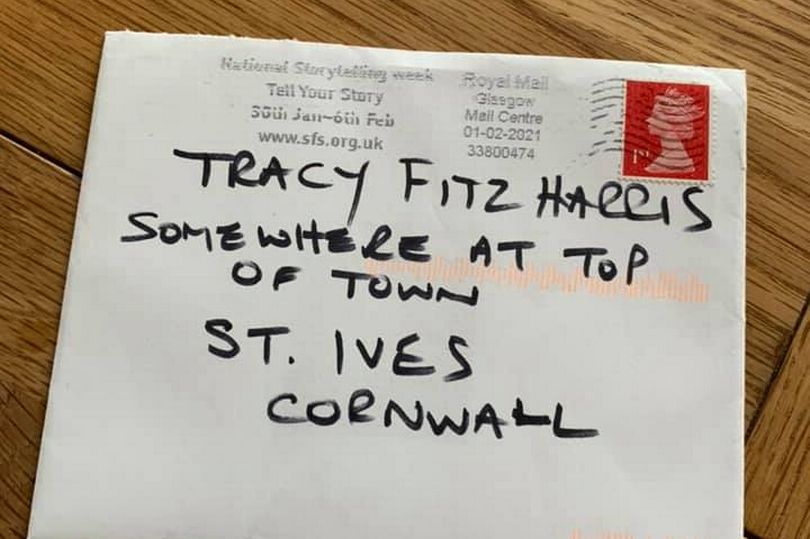 National Storytelling week
Tell Your Story
30th Jan-6th Feb
www.sfs.org.uk
Royal Mail
Glasgow
Mail Centre
01-02-2021
33800474
1ST
TRACY FITZ HARRIS
SOMEWHERE AT TOP
OF TOWN
ST. IVES
CORNWALL